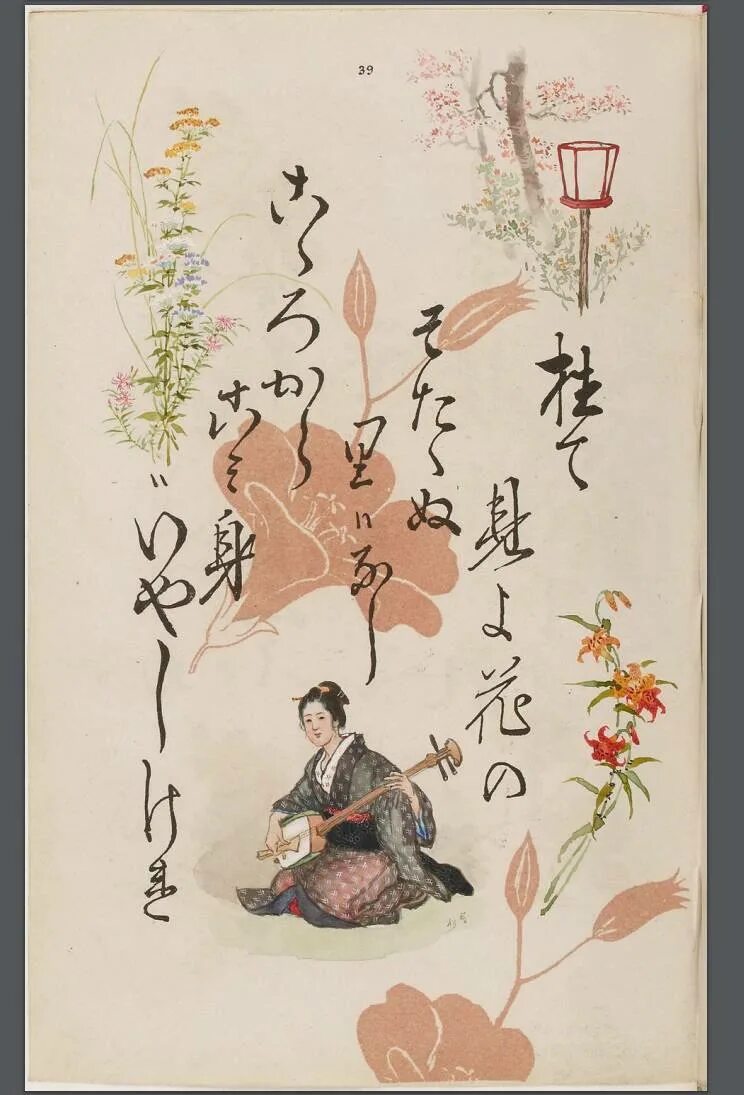 39
植て
見よ花の
そたゝぬ
里ハなし
こゝろから
こそ身
ハいやしけれ